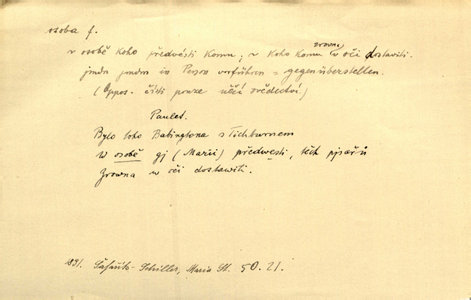 osoba f.
v osobě koho předvésti komu, v koho komu zrovna v oči dostaviti.
jmdn jmdm in Person vorführen = gegenüberstellen.
(Oppos. čísti pouze něčí svědectví)
Paulet.
Bylo toho Babingtona s Tichburnem
W osobě gj (Marii) předwesti, těch pjsařů
Zrowna w oči dostawiti.
1831. Šafařík-Schiller, Maria St. 50.21.